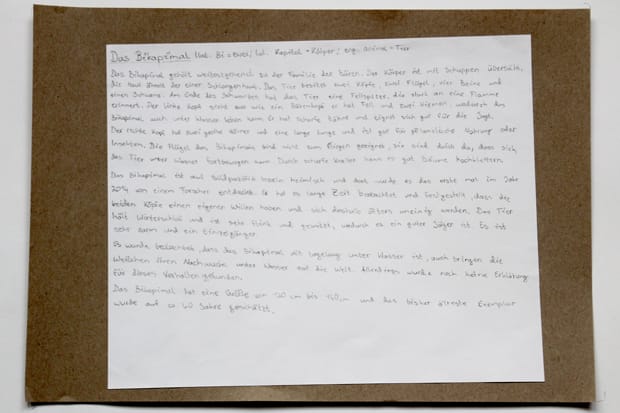 Das Bikapimal (lat. Bi = zwei / lat. Kapitel = Körper / eng. animal = Tier
Das Bikapimal gehört weitestgehend zu der Familie der Bären. Der Körper ist mit Schuppen übersäht,
die der einer Schlangenhaut. Das Tier besitzt zwei Köpfe, zwei Flügel, vier Beine und
einen Schwanz. Am Ende des Schwanzes hat das Tier eine Fellspitze, die stark an eine Flamme
erinnert. Der linke Kopf sieht aus wie ein Bärenkopf er hat Fell und zwei Kiemen, wodurch das
Bikapimal auch unter Wasser leben kann. Er hat scharfe Zähne und eignet sich gut für die Jagd.
Der rechte Kopf hat zwei große Hörner und eine lange Zunge und ist gut für pflanzliche Nahrung oder
Insekten. Die Flügel des Bikapimals sind nicht zum Fliegen geeignet, sie sind dafür da, dass sich
das Tier unter Wasser fortbewegen kann. Durch scharfe Krallen kann es gut Bäume hochklettern.
Das Bikapimal ist auf Inseln heimisch und dort wurde es das erste mal im Jahr
2014 von einem Forscher entdeckt. Er hat es lange Zeit beobachtet und festgestellt, dass die
beiden Köpfe einen eigenen Willen haben und sich deshalb öfters uneinig werden. Das Tier
hält Winterschlaf und ist sehr flink und, wodurch es ein guter Jäger ist. Es ist
sehr und ein Einzelgänger.
Es wurde beobachtet, dass das Bikapimal oft tagelang unter Wasser ist, auch bringen die
Weibchen ihren Nachwuchs unter Wasser auf die Welt. Allerdings wurde noch keine Erklärung
für dieses Verhalten gefunden.
Das Bikapimal hat eine Größe von 120 cm bis 140 cm und das bisher älteste Exemplar
wurde auf ca. 40 Jahre geschätzt.